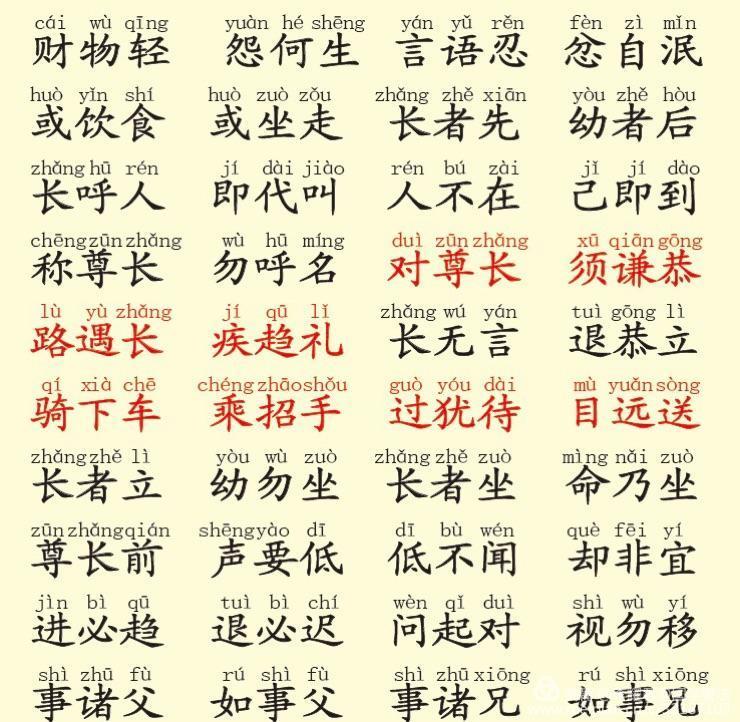 cái wù qīng yuàn hé shēng yán yǔ rěn fèn zì mǐn
财物轻 怨何生 言语忍 忿自泯
huò yǐn shí huò zuò zǒu zhǎng zhě xiān yòu zhě hòu
或饮食 或坐走 长者先 幼者后
zhǎng hū rén jí dài jiào rén bú zài jǐ jí dào
长呼人 即代叫 人不在 己即到
chēng zūn zhǎng wù hū míng duì zūn zhǎng xū qiān gōng
称尊长 勿呼名 对尊长 须谦恭
lù yù zhǎng jí qū lǐ zhǎng wú yán tuì gōng lì
路遇长 疾趋礼 长无言 退恭立
qí xià chē chéng zhāo shǒu guò yóu dài mù yuǎn sòng
骑下车 乘招手 过犹待 目远送
zhǎng zhě lì yòu wù zuò zhǎng zhě zuò mìng nǎi zuò
长者立 幼勿坐 长者坐 命乃坐
zūn zhǎng qián shēng yào dī dī bù wén què fēi yí
尊长前 声要低 低不闻 却非宜
jìn bì qū tuì bì chí wèn qǐ duì shì wù yí
进必趋 退必迟 问起对 视勿移
shì zhū fù rú shì fù shì zhū xiōng rú shì xiōng
事诸父 如事父 事诸兄 如事